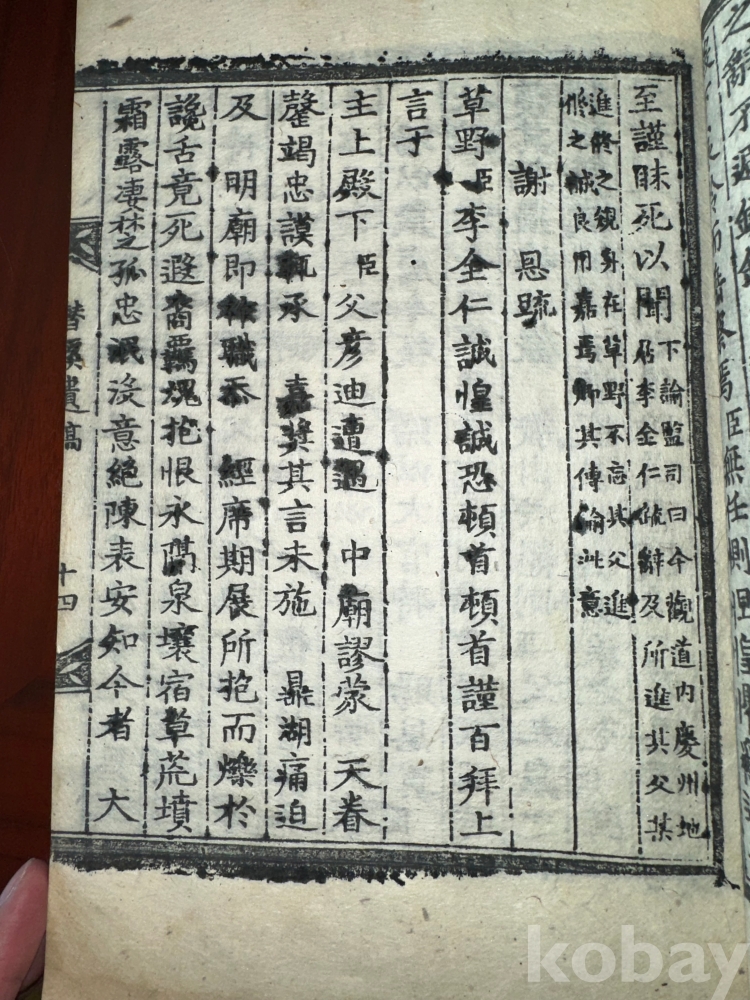 至謹昧死以聞
下諭監司曰今觀道内慶州地
居李全仁疏辭及所進其父某
進修之䂓身在草野不忘其父進
修之誠良用嘉焉卿其傳諭此意
謝 恩疏
草野臣李全仁誠惶誠恐頓首頓首謹百拜上
言于
主上殿下臣父彦迪遭遇 中廟謬蒙 天眷
罄竭忠謨輒承 嘉奬其言未施 鼎湖痛迫
及 明廟即 職忝 經席期展所抱而爍於
讒舌竟死遐裔羈魂抱恨永閟泉壤宿草荒墳
霜露凄楚孤忠泯沒意絶陳表安知今者 大
潛溪遺稿
十四
kobay